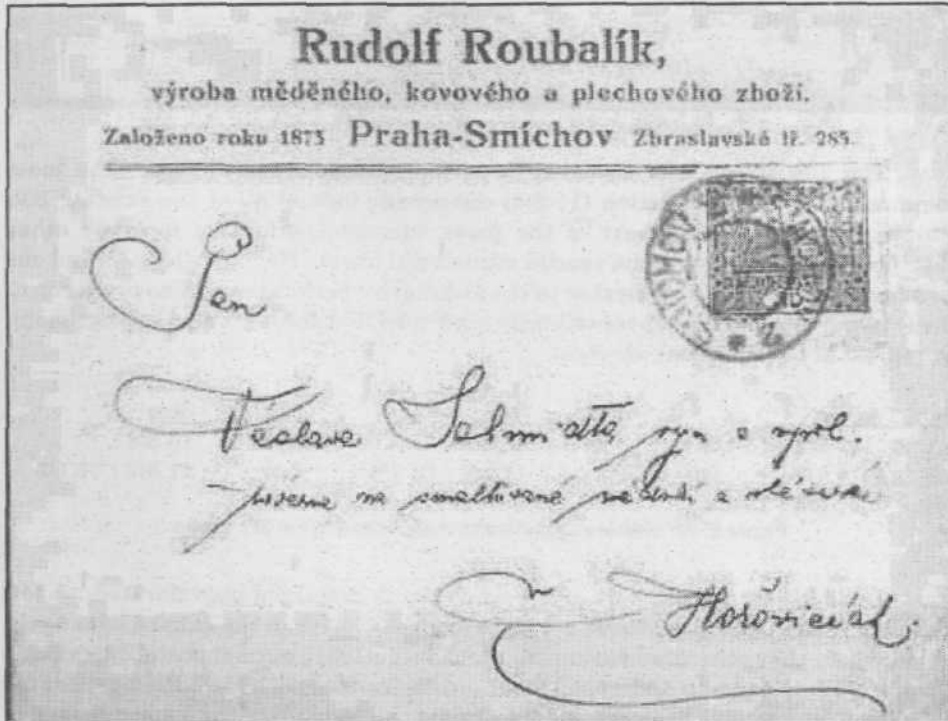 Rudolf Roubalík,
výroba měděného, kovového a plechového zboží.
Založeno roku 1873 Praha-Smíchov Zbraslavská tř. 285.
Pan
Václava Schmidta, syn a spol.
na smaltované nádobí a
v Hořovicích.